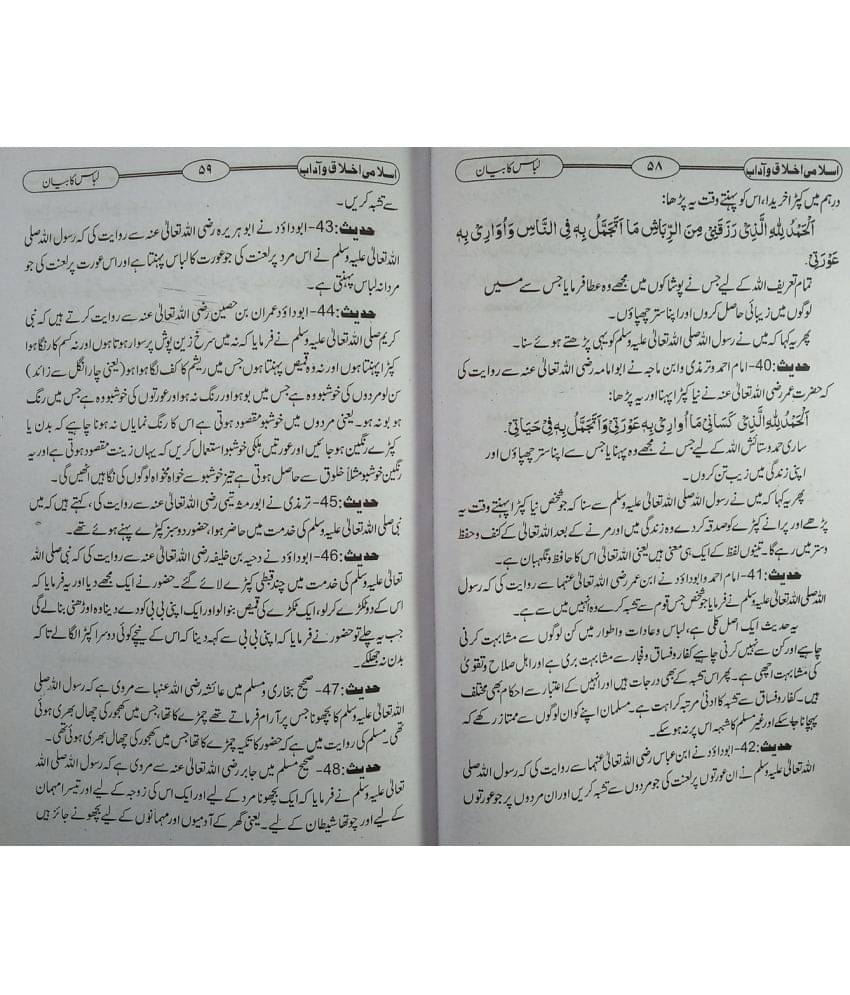 اسلامی اخلاق و آداب ۵۸ لباس کا بیان
درہم میں کپڑا خریدا، اس کو پہنتے وقت یہ پڑھا:
اَلْحَمْدُ لِلّٰہِ الَّذِیْ رَزَقَنِیْ مِنَ الرِّیَاشِ مَا اَتَجَمَّلُ بِہٖ فِی النَّاسِ وَاُوَارِیْ بِہٖ
عَوْرَتِیْ۔
تمام تعریف اللہ کے لیے جس نے پوشاکوں میں مجھے وہ عطا فرمایا جس سے میں
لوگوں میں زیبائی حاصل کروں اور اپنا ستر چھپاؤں۔
پھر یہ کہا کہ میں نے رسول اللہ صلی اللہ تعالیٰ علیہ وسلم کو یہی پڑھتے ہوئے سنا۔
حدیث: 40- امام احمد و ترمذی و ابن ماجہ نے ابوامامہ رضی اللہ تعالیٰ عنہ سے روایت کی
کہ حضرت عمر رضی اللہ تعالیٰ عنہ نے نیا کپڑا پہنا اور یہ پڑھا:
اَلْحَمْدُ لِلّٰہِ الَّذِیْ کَسَانِیْ مَا اُوَارِیْ بِہٖ عَوْرَتِیْ وَاَتَجَمَّلُ بِہٖ فِیْ حَیَاتِیْ۔
ساری حمد و ستائش اللہ کے لیے جس نے مجھے وہ پہنایا جس سے اپنا ستر چھپاؤں اور
اپنی زندگی میں زیب تن کروں۔
پھر یہ کہا کہ میں نے رسول اللہ صلی اللہ تعالیٰ علیہ وسلم سے سنا کہ جو شخص نیا کپڑا پہنتے وقت یہ
پڑھے اور پرانے کپڑے کو صدقہ کر دے وہ زندگی میں اور مرنے کے بعد اللہ تعالیٰ کے کنف و حفظ
و ستر میں رہے گا۔ تینوں لفظ کے ایک ہی معنی ہیں یعنی اللہ تعالیٰ اس کا حافظ و نگہبان ہے۔
حدیث: 41- امام احمد و ابوداؤد نے ابن عمر رضی اللہ تعالیٰ عنہما سے روایت کی کہ رسول
اللہ صلی اللہ تعالیٰ علیہ وسلم نے فرمایا جو شخص جس قوم سے تشبہ کرے وہ انہیں میں سے ہے۔
یہ حدیث ایک اصل کلی ہے، لباس و عادات و اطوار میں کن لوگوں سے مشابہت کرنی
چاہیے اور کن سے نہیں کرنی چاہیے کفار و فساق و فجار سے مشابہت بری ہے اور اہل صلاح و تقویٰ
کی مشابہت اچھی ہے۔ پھر اس تشبہ کے بھی درجات ہیں اور انہیں کے اعتبار سے احکام بھی مختلف
ہیں۔ کفار و فساق سے تشبہ کا ادنیٰ مرتبہ کراہت ہے۔ مسلمان اپنے کو ان لوگوں سے ممتاز رکھے کہ
پہچانا جا سکے اور غیر مسلم کا شبہ اس پر نہ ہو سکے۔
حدیث: 42- ابوداؤد نے ابن عباس رضی اللہ تعالیٰ عنہما سے روایت کی کہ رسول اللہ صلی
اللہ تعالیٰ علیہ وسلم نے ان عورتوں پر لعنت کی جو مردوں سے تشبہ کریں اور ان مردوں پر جو عورتوں
اسلامی اخلاق و آداب ۵۹ لباس کا بیان
سے تشبہ کریں۔
حدیث: 43- ابوداؤد نے ابوہریرہ رضی اللہ تعالیٰ عنہ سے روایت کی کہ رسول اللہ صلی
اللہ تعالیٰ علیہ وسلم نے اس مرد پر لعنت کی جو عورت کا لباس پہنتا ہے اور اس عورت پر لعنت کی جو
مردانہ لباس پہنتی ہے۔
حدیث: 44- ابوداؤد عمران بن حصین رضی اللہ تعالیٰ عنہ سے روایت کرتے ہیں کہ نبی
کریم صلی اللہ تعالیٰ علیہ وسلم نے فرمایا کہ نہ میں سرخ زین پوش پر سوار ہوتا ہوں اور نہ کسم کا رنگا ہوا
کپڑا پہنتا ہوں اور نہ وہ قمیص پہنتا ہوں جس میں ریشم کا کف لگا ہوا ہو (یعنی چار انگل سے زائد)
سن لو مردوں کی خوشبو وہ ہے جس میں بو ہو اور رنگ نہ ہو اور عورتوں کی خوشبو وہ ہے جس میں رنگ
ہو بو نہ ہو۔ یعنی مردوں میں خوشبو مقصود ہوتی ہے اس کا رنگ نمایاں نہ ہونا چاہیے کہ بدن یا
کپڑے رنگین ہو جائیں اور عورتیں ہلکی خوشبو استعمال کریں کہ یہاں زینت مقصود ہوتی ہے اور یہ
رنگین خوشبو مثلاً خلوق سے حاصل ہوتی ہے تیز خوشبو سے خواہ مخواہ لوگوں کی نگاہیں اٹھیں گی۔
حدیث: 45- ترمذی نے ابورمثہ تیمی رضی اللہ تعالیٰ عنہ سے روایت کی، کہتے ہیں کہ میں
نبی صلی اللہ تعالیٰ علیہ وسلم کی خدمت میں حاضر ہوا، حضور دو سبز کپڑے پہنے ہوئے تھے۔
حدیث: 46- ابوداؤد نے دحیہ بن خلیفہ رضی اللہ تعالیٰ عنہ سے روایت کی کہ نبی صلی اللہ
تعالیٰ علیہ وسلم کی خدمت میں چند قبطی کپڑے لائے گئے۔ حضور نے ایک مجھے دیا اور یہ فرمایا کہ
اس کے دو ٹکڑے کر لو، ایک ٹکڑے کی قمیص بنوا لو اور ایک اپنی بی بی کو دے دینا وہ اوڑھنی بنا لے گی
جب یہ چلے تو حضور نے فرمایا کہ اپنی بی بی سے کہہ دینا کہ اس کے نیچے کوئی دوسرا کپڑا لگا لے تاکہ
بدن نہ جھلکے۔
حدیث: 47- صحیح بخاری و مسلم میں عائشہ رضی اللہ عنہا سے مروی ہے کہ رسول اللہ صلی
اللہ تعالیٰ علیہ وسلم کا بچھونا جس پر آرام فرماتے تھے چمڑے کا تھا، جس میں کھجور کی چھال بھری ہوئی
تھی۔ مسلم کی روایت میں ہے کہ حضور کا تکیہ چمڑے کا تھا جس میں کھجور کی چھال بھری ہوئی تھی۔
حدیث: 48- صحیح مسلم میں جابر رضی اللہ تعالیٰ عنہ سے مروی ہے کہ رسول اللہ صلی اللہ
تعالیٰ علیہ وسلم نے فرمایا کہ ایک بچھونا مرد کے لیے اور ایک اس کی زوجہ کے لیے اور تیسرا مہمان
کے لیے اور چوتھا شیطان کے لیے۔ یعنی گھر کے آدمیوں اور مہمانوں کے لیے بچھونے جائز ہیں